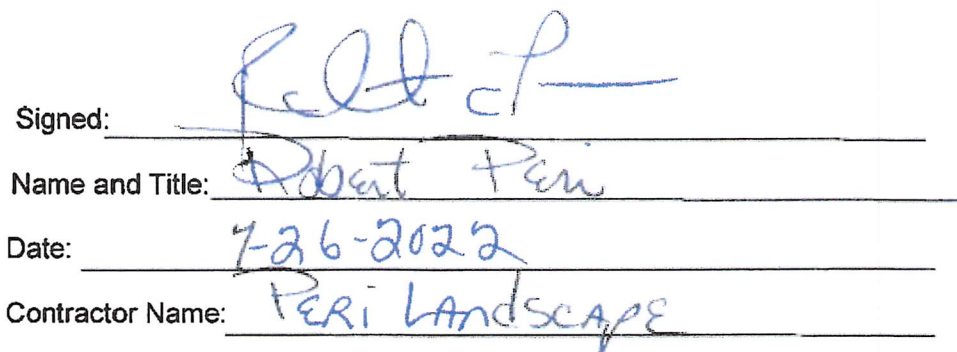 Signed:
Name and Title: Robert Peri
Date: 7-26-2022
Contractor Name: PERi LAndSCAPE